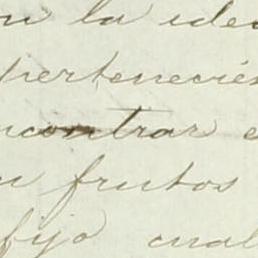 en la idea
pertenecién
ncontrar e
frutos
fijo cual